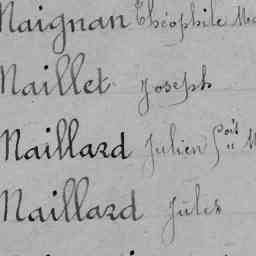 Maignan Théophile
Maillet Joseph
Maillard Julien Fois
Maillard Jules